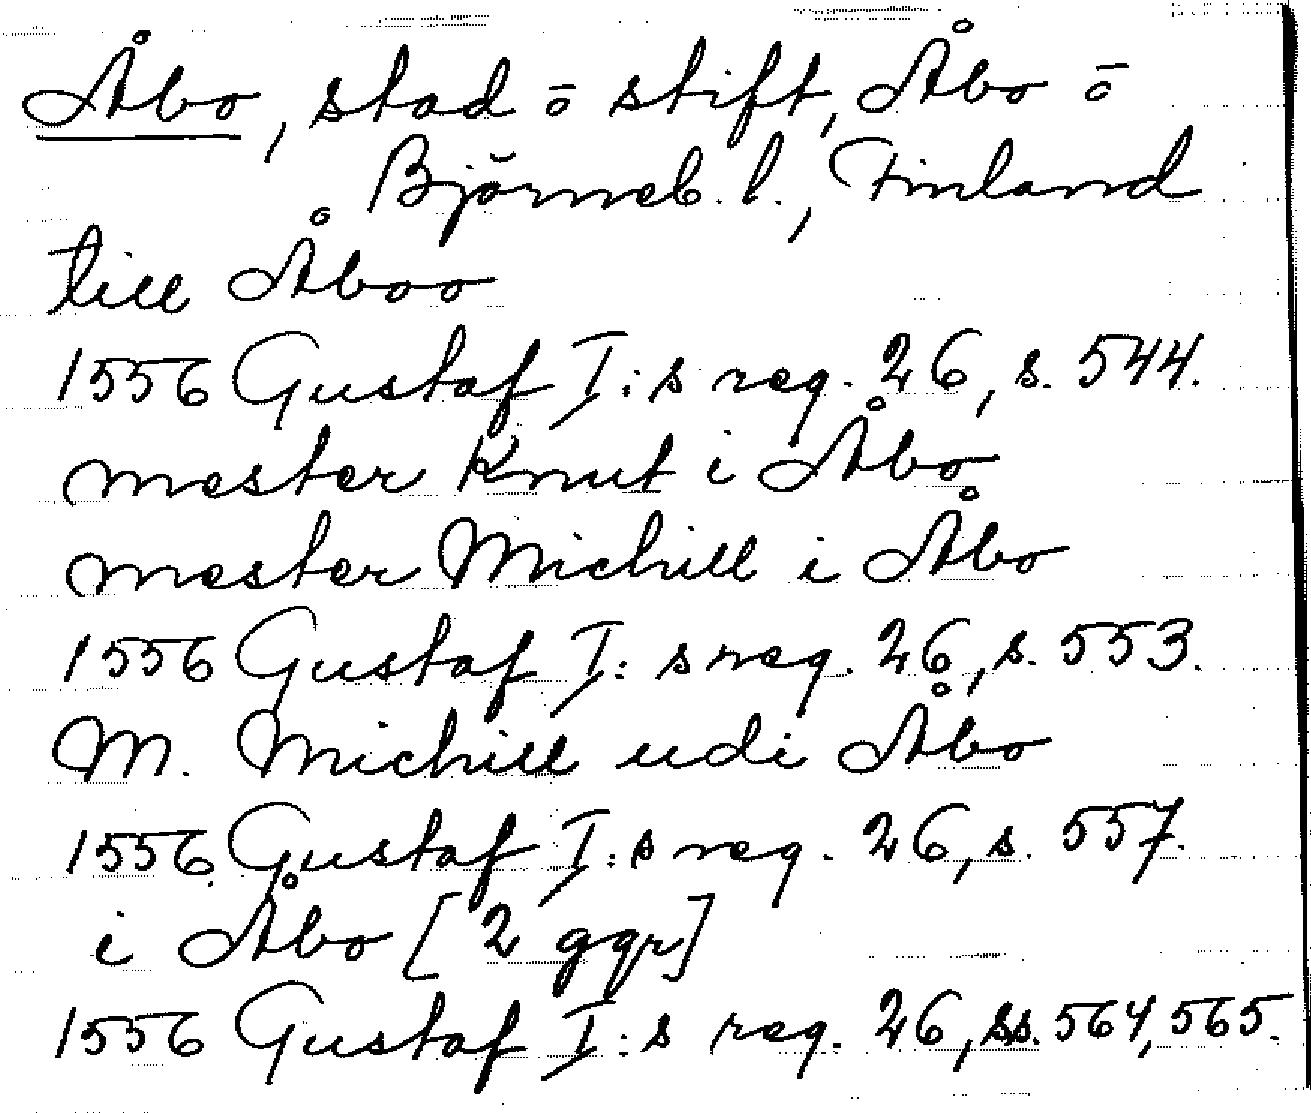 Åbo, stad o stift, Åbo o
Björneb. l., Finland
till Åboo
1556 Gustaf I:s reg. 26, s. 544.
mester Knut i Åbo
mester Michill i Åbo
1556 Gustaf I:s reg. 26, s. 553.
M. Michill udi Åbo
1556 Gustaf I:s reg. 26, s. 557.
i Åbo [2 ggr]
1556 Gustaf I:s reg. 26, ss. 564, 565.